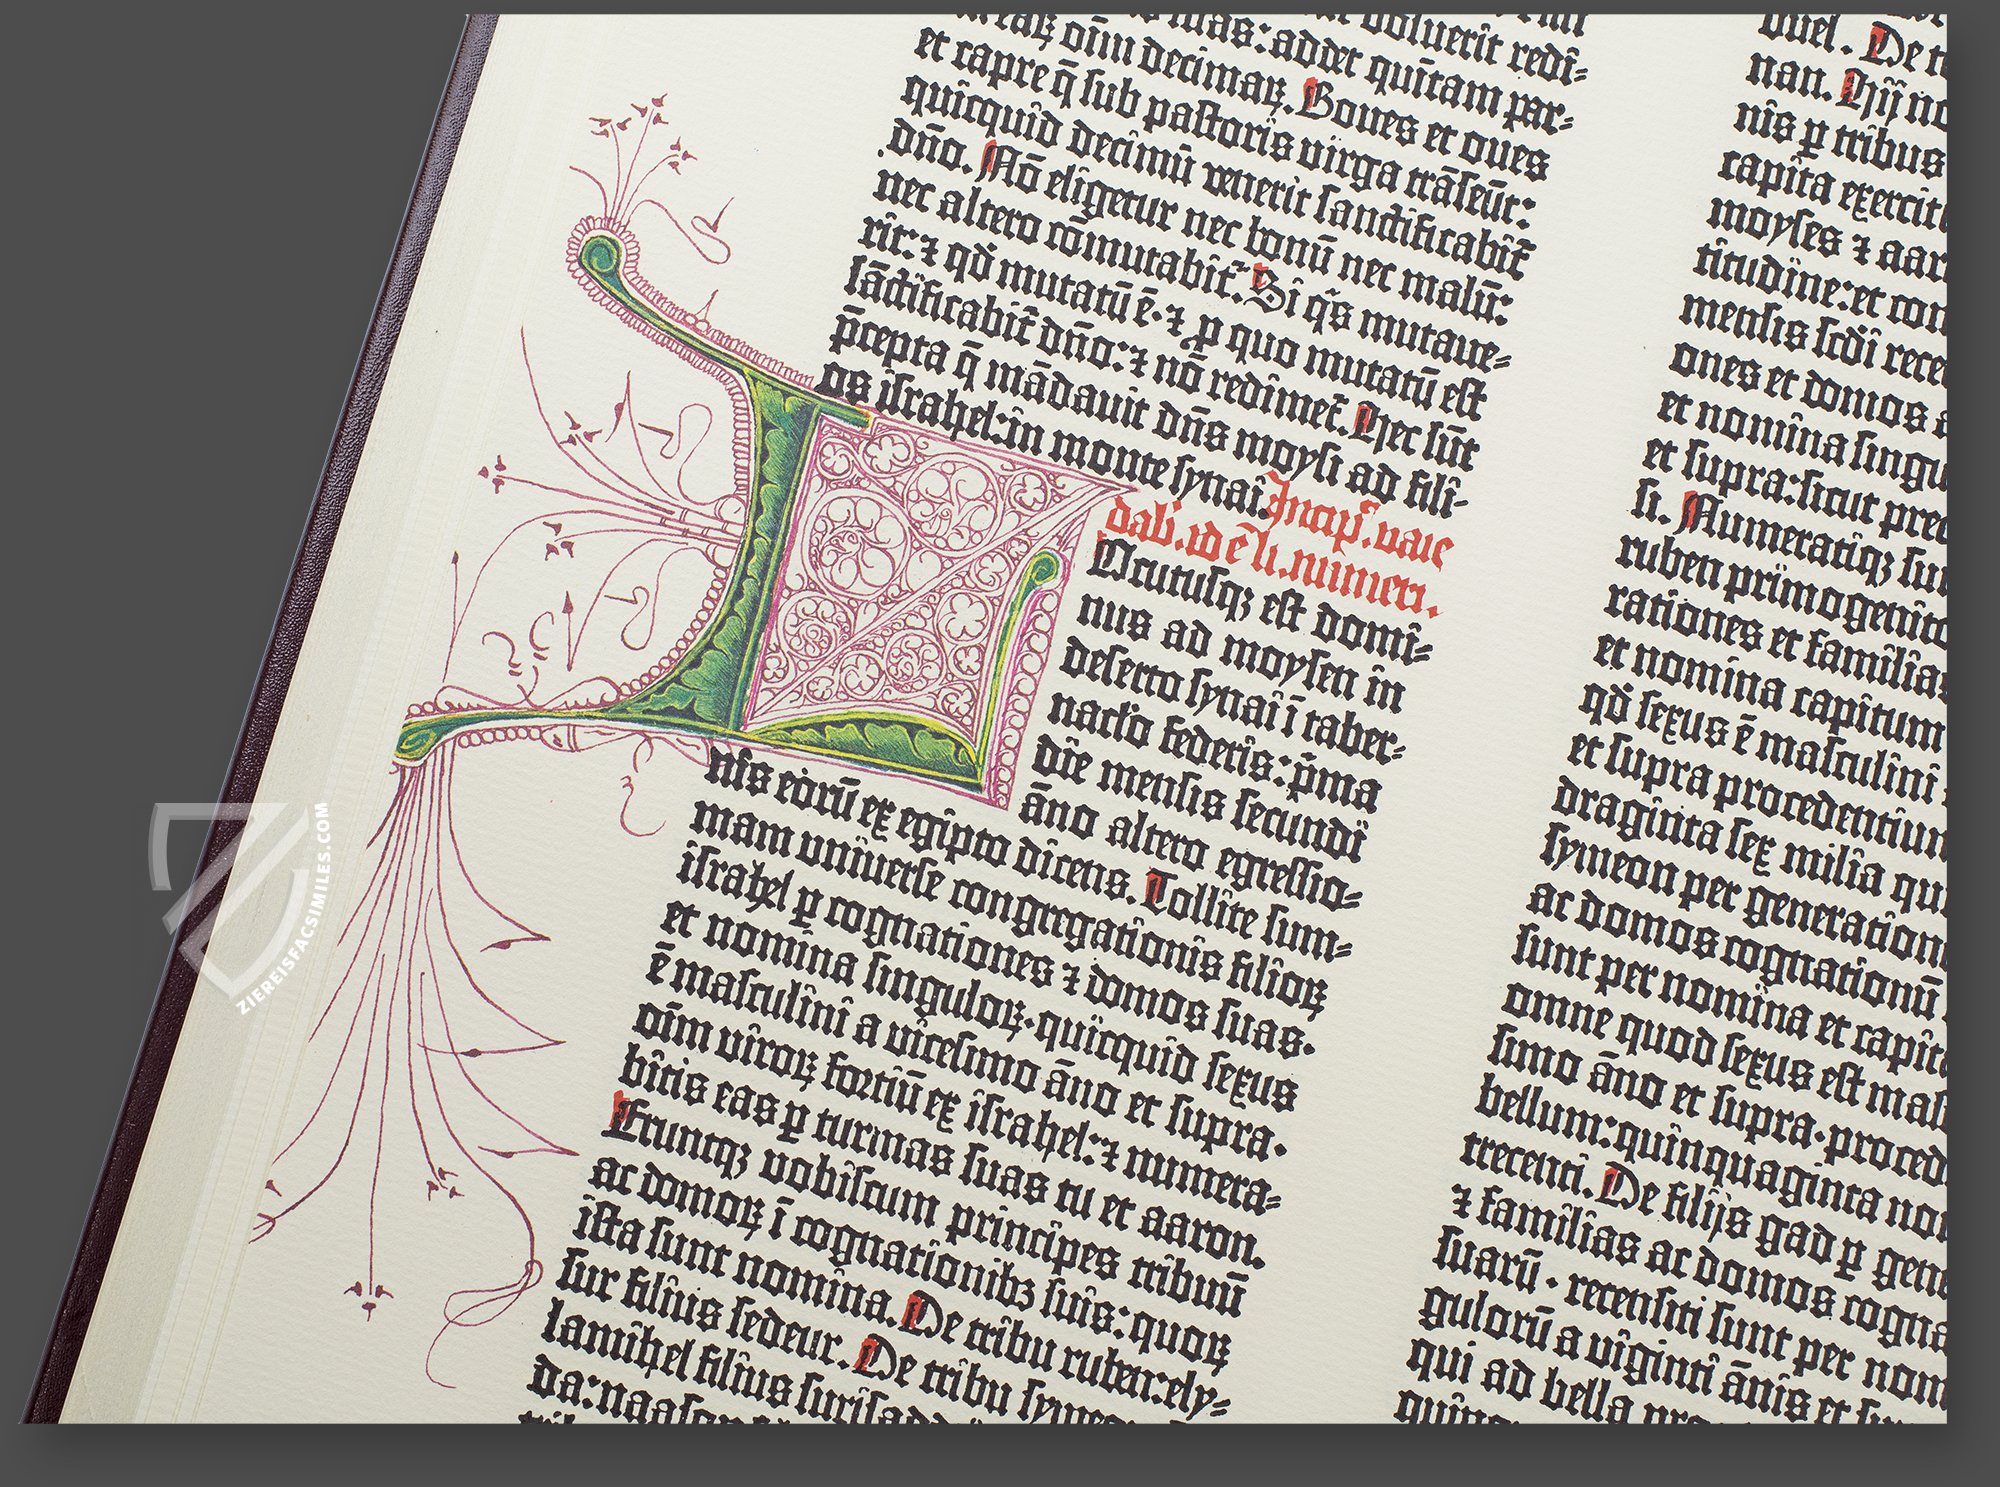 voluerit redi-
et capre q̄ sub pastoris virga trāseūt:
quicquid decimū venerit sanctificabit̄
dño. Nō eligetur nec bonū nec malū:
nec altero cōmutabit̄. Si q̓s mutaue-
rit: ⁊ qđ mutatū ē· ⁊ ꝓ quo mutatū est
sāctificabit̄ dño: ⁊ nō redimet̄. Hec sūt
p̄cepta q̄ mādauit dn̄s moysi ad fili-
os israhel: in monte synai. Incip̓. vaie
dab̓. id ē li. numeri.
Locutusqꝫ est domi-
nus ad moysen in
deserto synai ī taber-
naclo federis: p̄ma
die mensis secundi
āno altero egressio-
nis eorū ex egipto dicens. Tollite sum-
mam vniuerse congregationis filioꝝ
israhel ꝑ cognationes ⁊ domos suas.
et nomina singuloꝝ· quicquid sexus
ē masculini a vicesimo āno et supra·
oīm viroꝝ fortiū ex israhel: ⁊ numera-
bitis eas ꝑ turmas suas tu et aaron.
Eruntqꝫ vobiscum principes tribuū
ac domoꝝ ī cognationibꝫ suis: quoꝝ
ista sunt nomina. De tribu ruben: ely-
sur filius sedeur. De tribu symeon
lamihel filius surisaddai
da: naason
uel. De
nan. Hij
nis ꝑ tribus
capita exercit
moyses ⁊ aar
titudine: et con
mensis scdi rece
ones et domos
et nomina singu
et supra: sicut pre
si. Numeratiqꝫ su
ruben primogenito
rationes et familias
et nomina capitum
qđ sexus ē masculini
et supra procedentium
draginta sex milia qui
symeon per generation
ac domos cognationū
sunt per nomina et capit
omne quod sexus est mas
simo āno et supra· proced
bellum: quinquaginta no
trecenti. De filijs gad ꝑ gene
⁊ familias ac domos cogna
suarū· recensiti sunt per nom
gulorū a viginti ānis et su
qui ad bella pro
ZIEREISFACSIMILES.COM